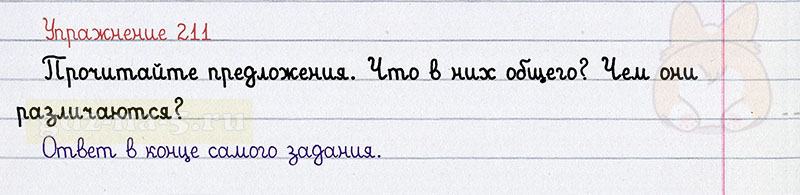 Упражнение 211
Прочитайте предложения. Что в них общего? Чем они
различаются?
Ответ в конце самого задания.